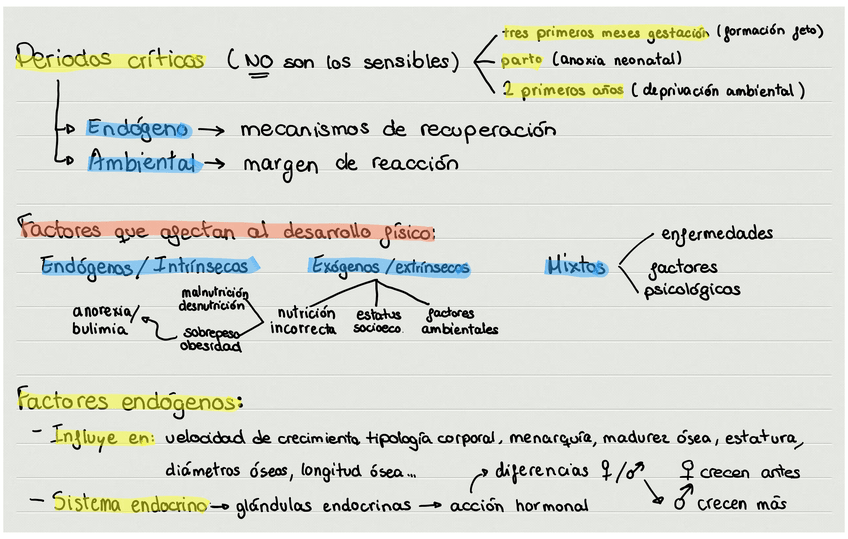 tres primeros meses gestación (formación feto)
Periodos críticos (NO son los sensibles)
parto (anoxia neonatal)
2 primeros años (deprivación ambiental)
Endógeno → mecanismos de recuperación
Ambiental → margen de reacción
Factores que afectan al desarrollo físico:
Endógenos/Intrínsecos
Exógenos/extrínsecos
Mixtos
enfermedades
factores
psicológicas
nutrición
incorrecta
estatus
socioeco.
factores
ambientales
malnutrición
desnutrición
sobrepeso
obesidad
anorexia/
bulimia
Factores endógenos:
- Influye en: velocidad de crecimiento, tipología corporal, menarquía, madurez ósea, estatura,
diámetros óseos, longitud ósea...
- Sistema endocrino → glándulas endocrinas → acción hormonal
diferencias ♀/♂
♀ crecen antes
♂ crecen más